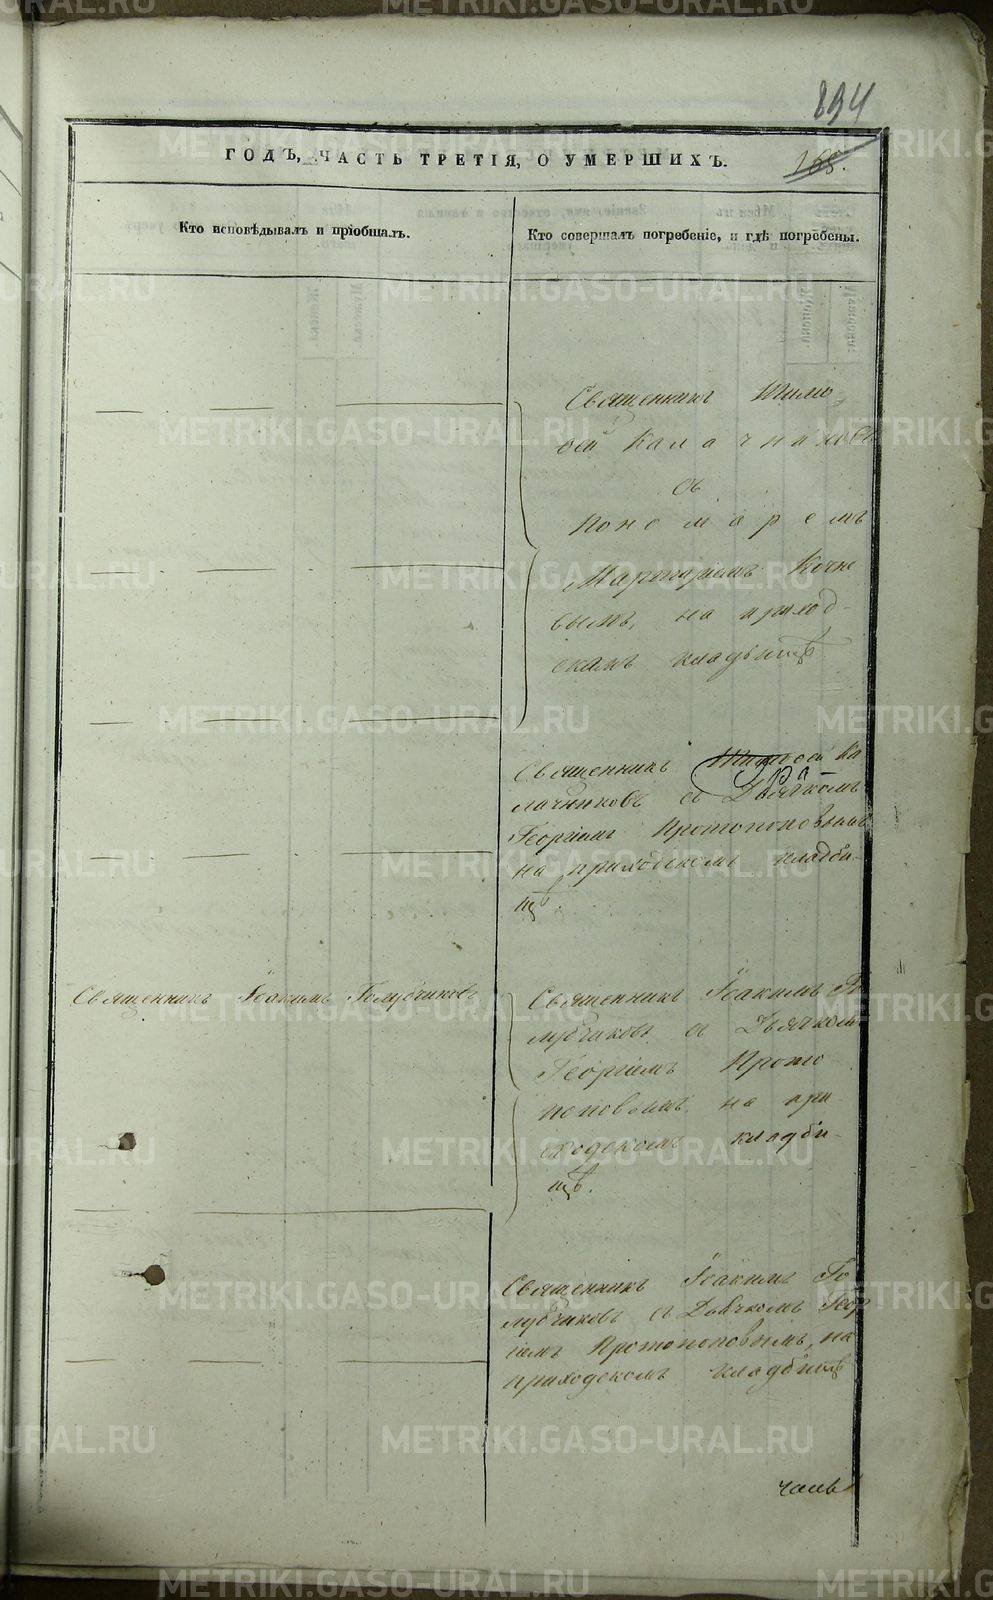 894
168.
ГОДЪ, ЧАСТЬ ТРЕТІЯ, О УМЕРШИХЪ.
Кто исповѣдывалъ и пріобщалъ.
Кто совершалъ погребеніе, и гдѣ погребены.
Священникъ Тимо
фей Калачниковъ
съ
Пономаремъ
Мартиріемъ Кочне
вымъ, на приход-
скомъ кладбищѣ
Священникъ Тимофей Ка
лачниковъ съ Дьячкомъ
Георгіемъ Протопоповымъ
на приходскомъ кладби-
щѣ.
Священникъ Іоакимъ Голубчиковъ
Священникъ Іоакимъ Го
лубчиковъ съ Дьячкомъ
Георгіемъ Прото
поповымъ на при
ходскомъ кладби-
щѣ.
Священникъ Іоакимъ Го
лубчиковъ съ Дьячкомъ Геор
гіемъ Протопоповымъ, на
приходскомъ кладбищѣ
METRIKI.GASO-URAL.RU